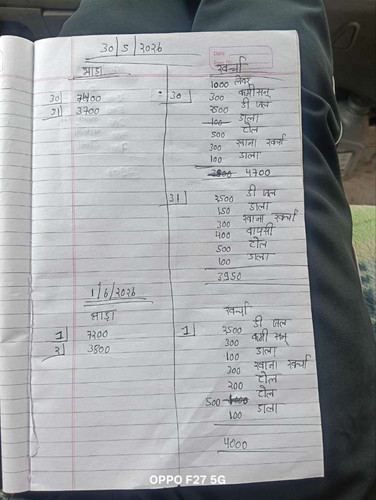 30/5/2026
भाड़ा
खर्चा
1000 लेबर
30] 7400
30 300 कमीसन्
31] 3700
2500 डी जल
100 डाला
500 टोल
300 खाना खर्चा
100 डाला
4700
31] 2500 डी जल
150 डाला
300 खाना खर्चा
400 वापसी
500 टोल
100 डाला
3950
1/6/2026
भाड़ा
खर्चा
1] 7200
1] 2500 डी जल
2] 3800
300 कमीसन्
100 डाला
300 खाना खर्चा
200 टोल
500 टोल
100 डाला
4000
OPPO F27 5G